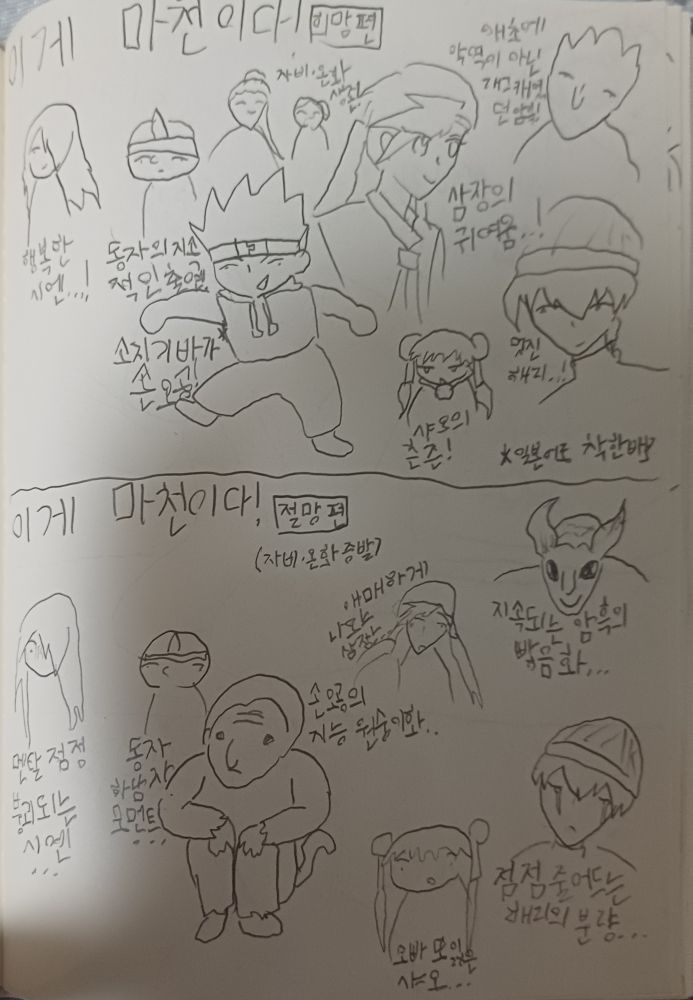 이게 마천이다! 희망편
자비·온화
생존
애초에
악역이 아닌
개그캐였
던 암흑
행복한
시엔...!
동자의 지속
적인 출연
삼장의
귀여움...!
손지기바가
손오공!
멋진
해리...!
샤오의
춘준!
*일본어도 착한배우
이게 마천이다! 절망편
(자비·온화 증발)
애매하게
나오는
삼장
지속되는 암흑의
빡음화...
멘탈 점점
붕괴되는
시엔
...
동자
하남자
모먼트
...
손오공의
지능 원숭이화..
오빠 못잊은
샤오...
점점 줄어드는
해리의 분량...